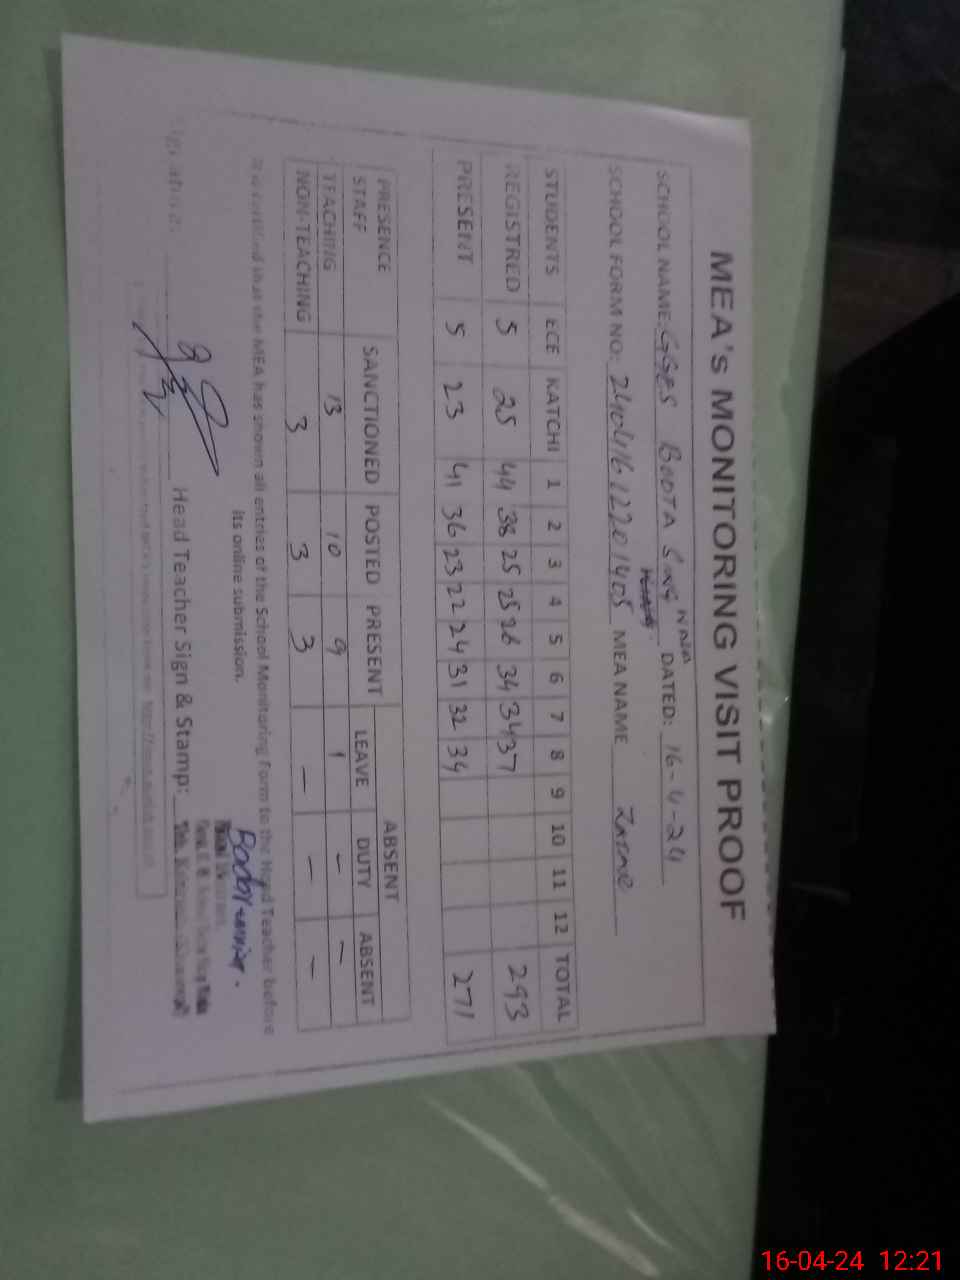 MEA's MONITORING VISIT PROOF
SCHOOL NAME: GGES BOOTA DATED: 16-4-24
SCHOOL FORM NO: MEA NAME
STUDENTS ECE KATCHI 1 2 3 4 5 6 7 8 9 10 11 12 TOTAL
REGISTRED 5 25 44 38 25 25 26 34 34 37 293
PRESENT 5 23 41 36 23 22 24 31 32 34 271
PRESENCE ABSENT
STAFF SANCTIONED POSTED PRESENT LEAVE DUTY ABSENT
TEACHING 13 10 9 1 - -
NON-TEACHING 3 3 3 - - -
It is certified that the MEA has shown all entries of the School Monitoring Form to the Head Teacher before
its online submission.
Signature: Head Teacher Sign & Stamp:
16-04-24 12:21